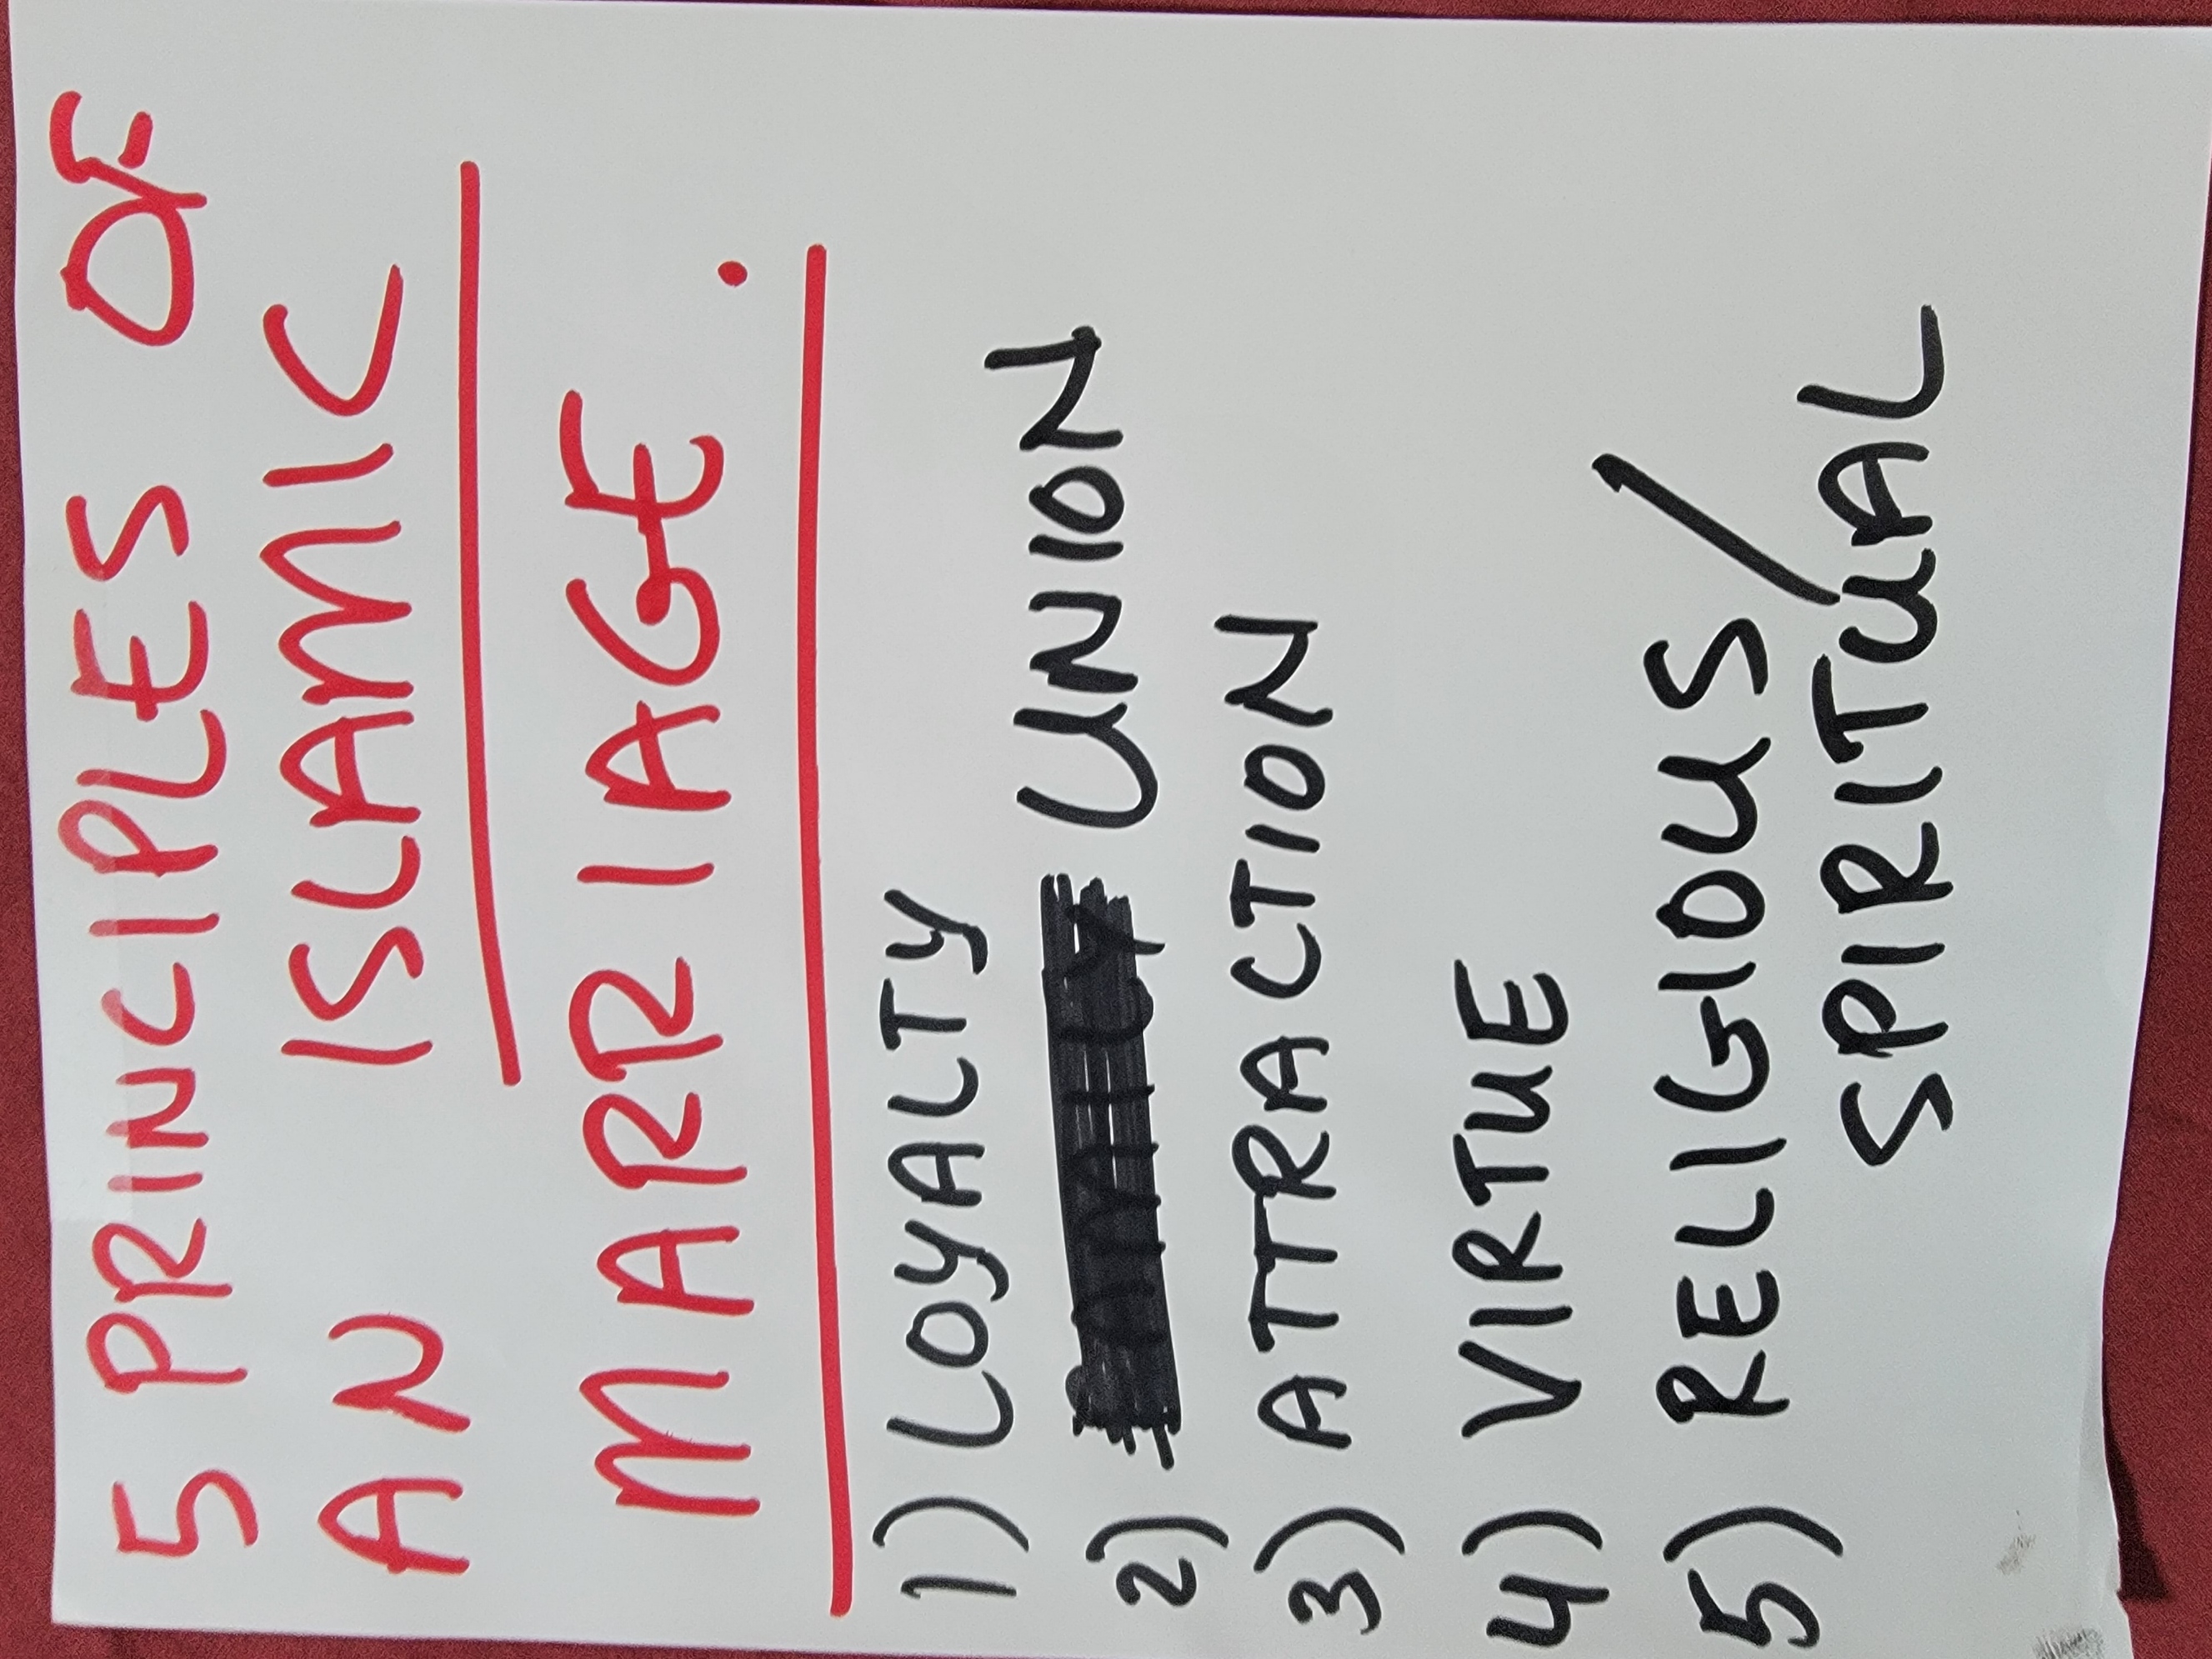 5 PRINCIPLES OF
AN ISLAMIC
MARRIAGE.
1) LOYALTY
2) UNION
3) ATTRACTION
4) VIRTUE
5) RELIGIOUS/
SPIRITUAL